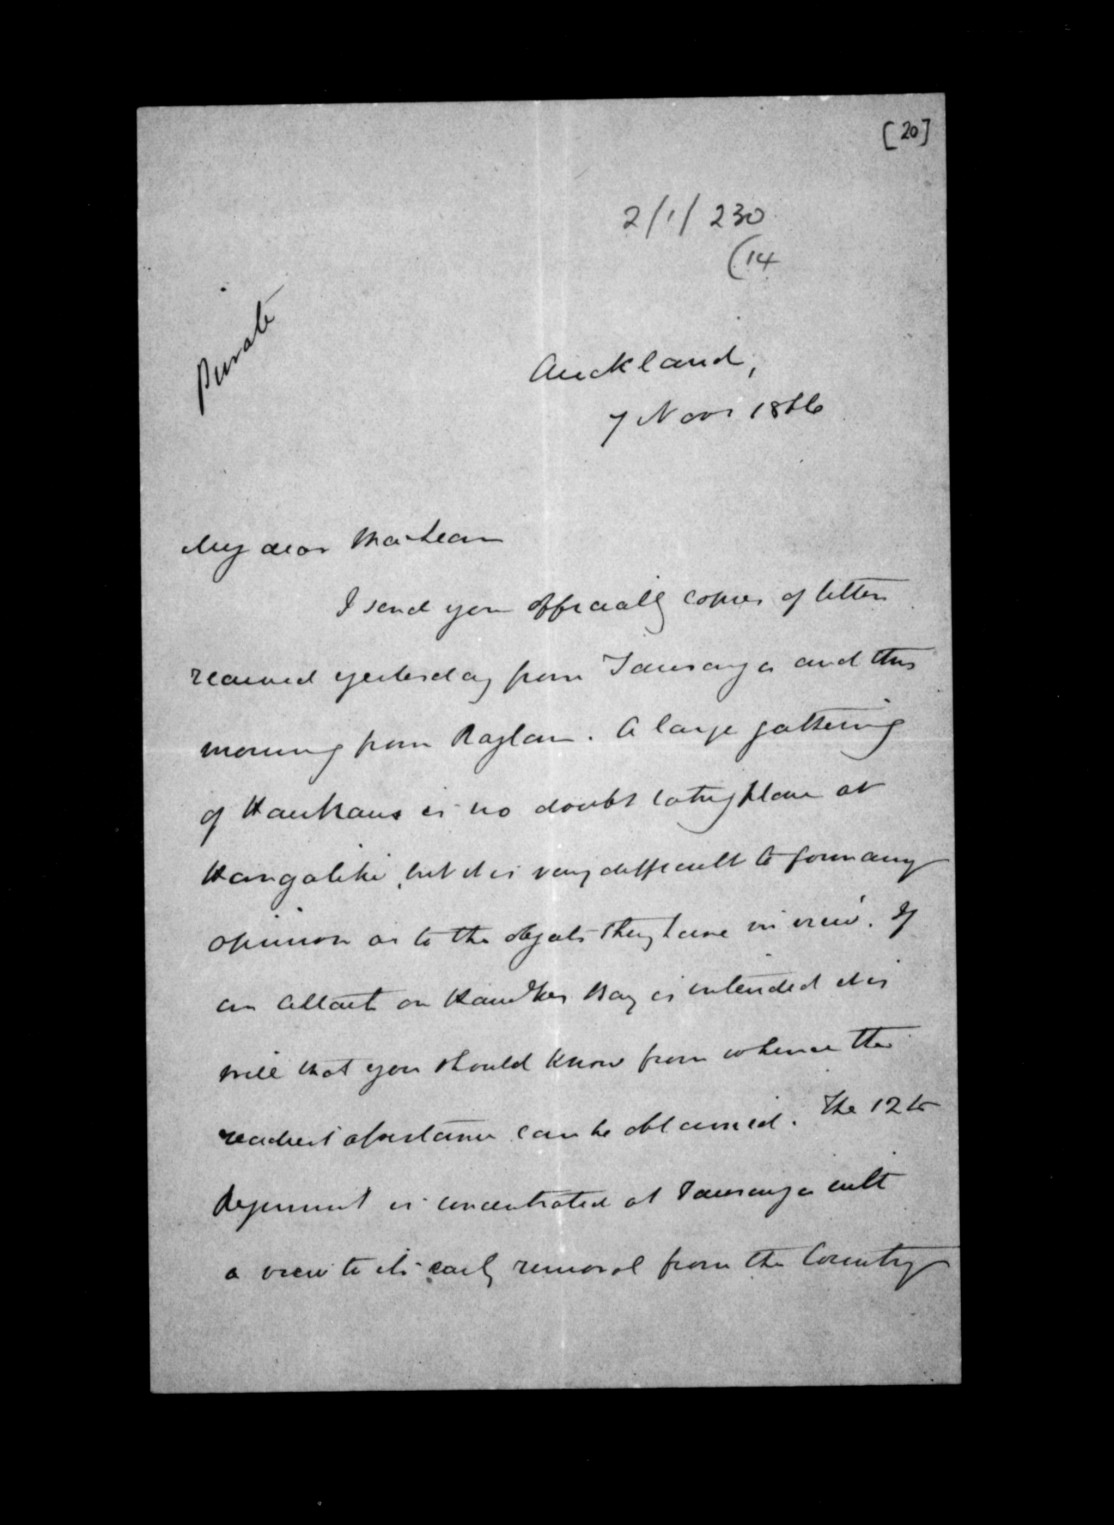 [20]
2/1/230
(14
Private
Auckland,
7 Novr 1866
My dear MacLean
I send you officially copies of letters
received yesterday from Tauranga and this
morning from Raglan. A large gathering
of Hauhaus is no doubt taking place at
Hangatiki, but it is very difficult to form any
opinion as to the objects they have in view. If
an attack on Hawkes Bay is intended it is
well that you should know from whence the
readiest assistance can be obtained. The 12th
Regiment is concentrated at Tauranga with
a view to its early removal from the Country